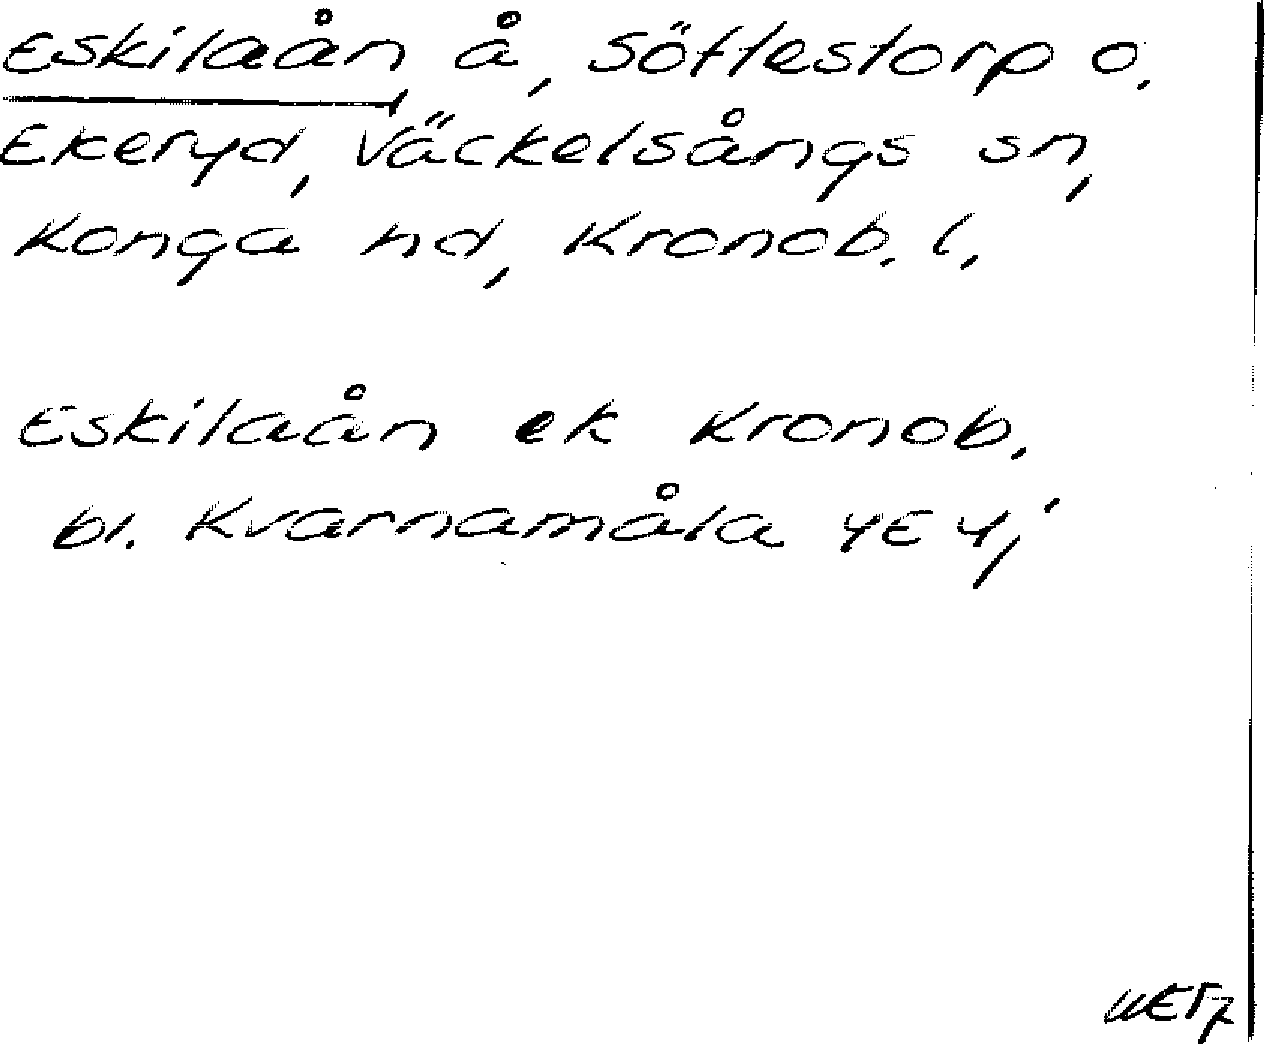 Eskilaån, å, Söftestorp o.
Ekeryd, Väckelsångs sn,
Konga hd, Kronob. l.
Eskilaån ek Kronob.
bl. Kvarnamåla 4E4j